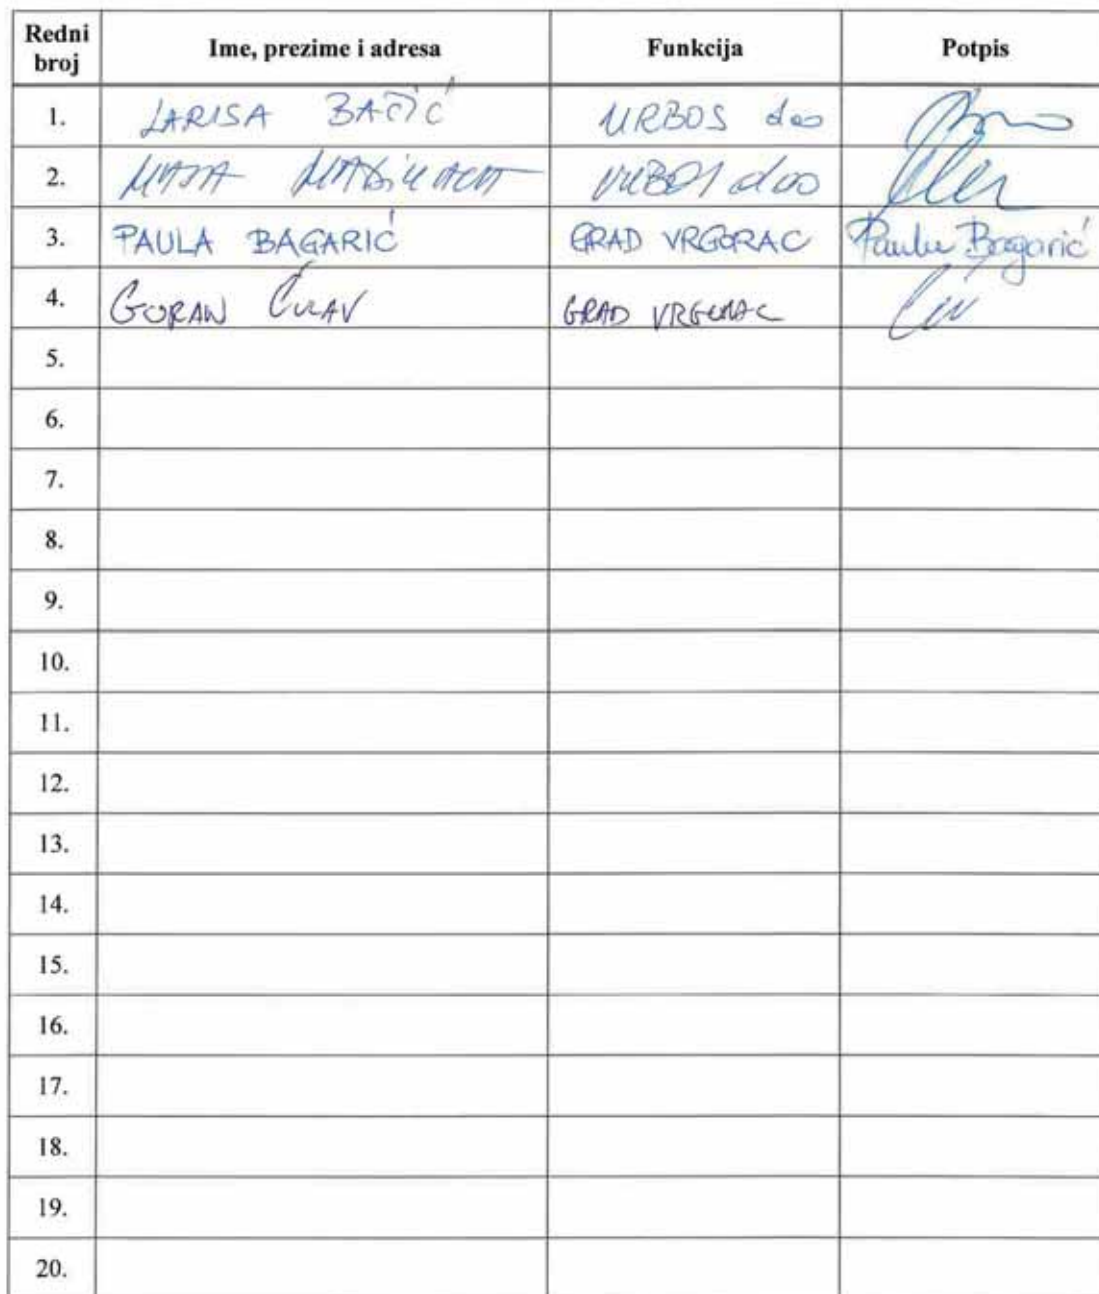 Redni broj Ime, prezime i adresa Funkcija Potpis
1. LARISA BAČIĆ URBOS doo
2. MAJA URBOS doo
3. PAULA BAGARIĆ GRAD VRGORAC Paula Bagarić
4. GORAN ČULAV GRAD VRGORAC
5.
6.
7.
8.
9.
10.
11.
12.
13.
14.
15.
16.
17.
18.
19.
20.